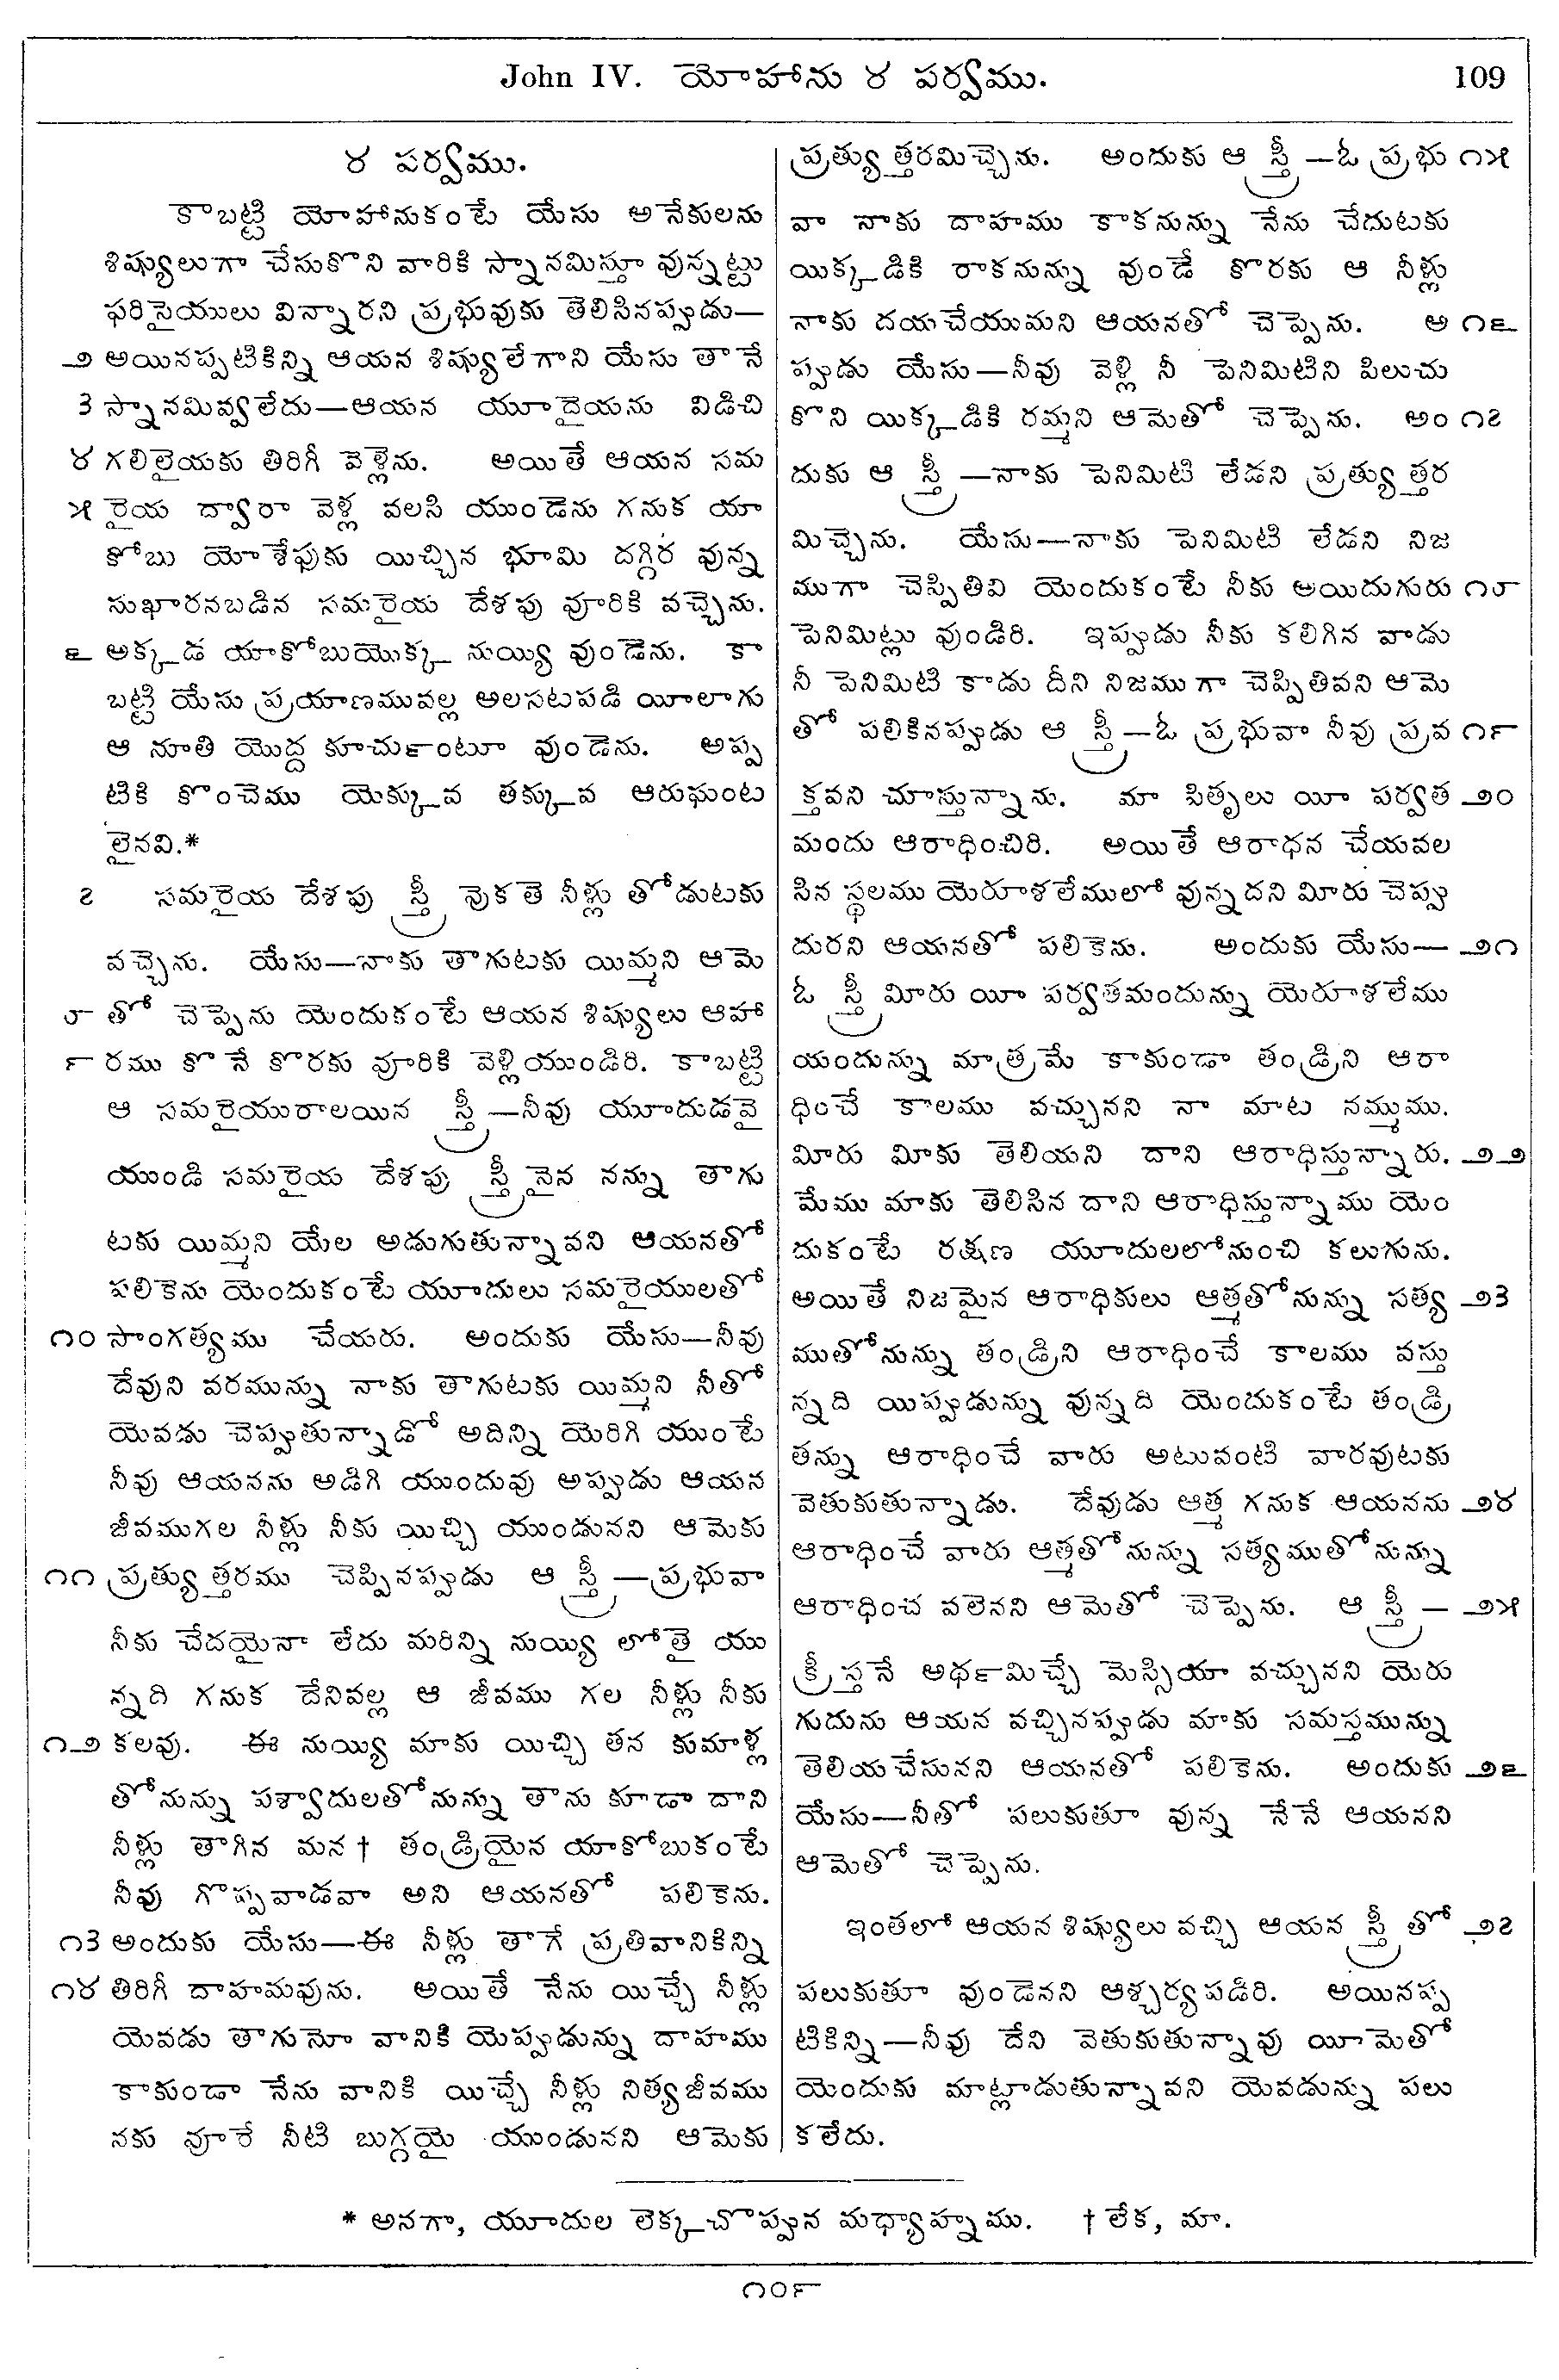 John IV. యోహాను ౪ పర్వము. 109
౪ పర్వము.
కాబట్టి యోహానుకంటే యేసు అనేకులను
శిష్యులుగా చేసుకొని వారికి స్నానమిస్తూ వున్నట్టు
ఫరిసైయులు విన్నారని ప్రభువుకు తెలిసినప్పుడు—
౨ అయినప్పటికిన్ని ఆయన శిష్యులేగాని యేసు తానే
౩ స్నానమివ్వలేదు—ఆయన యూదైయను విడిచి
౪ గలిలైయకు తిరిగీ వెళ్లెను. అయితే ఆయన సమ
౫ రైయ ద్వారా వెళ్ల వలసి యుండెను గనుక యా
కోబు యోశేఫుకు యిచ్చిన భూమి దగ్గిర వున్న
సుఖారనబడిన సమరైయ దేశపు వూరికి వచ్చెను.
౬ అక్కడ యాకోబుయొక్క నుయ్యి వుండెను. కా
బట్టి యేసు ప్రయాణమువల్ల అలసటపడి యీలాగు
ఆ నూతి యొద్ద కూచుఁంటూ వుండెను. అప్ప
టికి కొంచెము యెక్కువ తక్కువ ఆరుఘంట
లైనవి.*
౭ సమరైయ దేశపు స్త్రీ వొకతె నీళ్లు తోడుటకు
వచ్చెను. యేసు—నాకు తాగుటకు యిమ్మని ఆమె
౮ తో చెప్పెను యెందుకంటే ఆయన శిష్యులు ఆహా
౯ రము కొనే కొరకు వూరికి వెళ్లియుండిరి. కాబట్టి
ఆ సమరైయురాలయిన స్త్రీ—నీవు యూదుడవై
యుండి సమరైయ దేశపు స్త్రీనైన నన్ను తాగు
టకు యిమ్మని యేల అడుగుతున్నావని ఆయనతో
పలికెను యెందుకంటే యూదులు సమరైయులతో
౧౦ సాంగత్యము చేయరు. అందుకు యేసు—నీవు
దేవుని వరమున్ను నాకు తాగుటకు యిమ్మని నీతో
యెవడు చెప్పుతున్నాడో అదిన్ని యెరిగి యుంటే
నీవు ఆయనను అడిగి యుందువు అప్పుడు ఆయన
జీవముగల నీళ్లు నీకు యిచ్చి యుండునని ఆమెకు
౧౧ ప్రత్యుత్తరము చెప్పినప్పుడు ఆ స్త్రీ—ప్రభువా
నీకు చేదయైనా లేదు మరిన్ని నుయ్యి లోతై యు
న్నది గనుక దేనివల్ల ఆ జీవము గల నీళ్లు నీకు
౧౨ కలవు. ఈ నుయ్యి మాకు యిచ్చి తన కుమాళ్ల
తోనున్ను పశ్వాదులతోనున్ను తాను కూడా దాని
నీళ్లు తాగిన మన† తండ్రియైన యాకోబుకంటే
నీవు గొప్పవాడవా అని ఆయనతో పలికెను.
౧౩ అందుకు యేసు—ఈ నీళ్లు తాగే ప్రతివానికిన్ని
౧౪ తిరిగీ దాహమవును. అయితే నేను యిచ్చే నీళ్లు
యెవడు తాగునో వానికి యెప్పుడున్ను దాహము
కాకుండా నేను వానికి యిచ్చే నీళ్లు నిత్యజీవము
నకు వూరే నీటి బుగ్గయై యుండునని ఆమెకు
ప్రత్యుత్తరమిచ్చెను. అందుకు ఆ స్త్రీ—ఓ ప్రభు ౧౫
వా నాకు దాహము కాకనున్ను నేను చేదుటకు
యిక్కడికి రాకనున్ను వుండే కొరకు ఆ నీళ్లు
నాకు దయచేయుమని ఆయనతో చెప్పెను. అ ౧౬
ప్పుడు యేసు—నీవు వెళ్లి నీ పెనిమిటిని పిలుచు
కొని యిక్కడికి రమ్మని ఆమెతో చెప్పెను. అం ౧౭
దుకు ఆ స్త్రీ—నాకు పెనిమిటి లేడని ప్రత్యుత్తర
మిచ్చెను. యేసు—నాకు పెనిమిటి లేడని నిజ
ముగా చెస్పితివి యెందుకంటే నీకు అయిదుగురు ౧౮
పెనిమిట్లు వుండిరి. ఇప్పుడు నీకు కలిగిన వాడు
నీ పెనిమిటి కాడు దీని నిజముగా చెప్పితివని ఆమె
తో పలికినప్పుడు ఆ స్త్రీ—ఓ ప్రభువా నీవు ప్రవ ౧౯
క్తవని చూస్తున్నాను. మా పితృలు యీ పర్వత ౨౦
మందు ఆరాధించిరి. అయితే ఆరాధన చేయవల
సిన స్థలము యెరూశలేములో వున్నదని మీరు చెప్పు
దురని ఆయనతో పలికెను. అందుకు యేసు— ౨౧
ఓ స్త్రీ మీరు యీ పర్వతమందున్ను యెరూశలేము
యందున్ను మాత్రమే కాకుండా తండ్రిని ఆరా
ధించే కాలము వచ్చునని నా మాట నమ్ముము.
మీరు మీకు తెలియని దాని ఆరాధిస్తున్నారు. ౨౨
మేము మాకు తెలిసిన దాని ఆరాధిస్తున్నాము యెం
దుకంటే రక్షణ యూదులలోనుంచి కలుగును.
అయితే నిజమైన ఆరాధికులు ఆత్మతోనున్ను సత్య ౨౩
ముతోనున్ను తండ్రిని ఆరాధించే కాలము వస్తు
న్నది యిప్పుడున్ను వున్నది యెందుకంటే తండ్రి
తన్ను ఆరాధించే వారు అటువంటి వారవుటకు
వెతుకుతున్నాడు. దేవుడు ఆత్మ గనుక ఆయనను ౨౪
ఆరాధించే వారు ఆత్మతోనున్ను సత్యముతోనున్ను
ఆరాధించ వలెనని ఆమెతో చెప్పెను. ఆ స్త్రీ — ౨౫
క్రీస్తనే అథ౯మిచ్చే మెస్సియా వచ్చునని యెరు
గుదును ఆయన వచ్చినప్పుడు మాకు సమస్తమున్ను
తెలియచేసునని ఆయనతో పలికెను. అందుకు ౨౬
యేసు—నీతో పలుకుతూ వున్న నేనే ఆయనని
ఆమెతో చెప్పెను.
ఇంతలో ఆయన శిష్యులు వచ్చి ఆయన స్త్రీతో ౨౭
పలుకుతూ వుండెనని ఆశ్చర్యపడిరి. అయినప్ప
టికిన్ని—నీవు దేని వెతుకుతున్నావు యీమెతో
యెందుకు మాట్లాడుతున్నావని యెవడున్ను పలు
కలేదు.
* అనగా, యూదుల లెక్కచొప్పున మధ్యాహ్నము. † లేక, మా.
౧౦౯